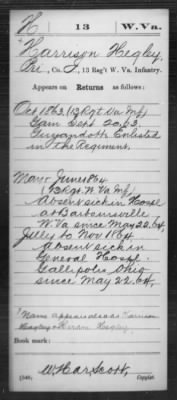 H | 13 | W.Va.
Harrison Hegley
Pvt., Co. I, 13 Reg't W. Va. Infantry.
Appears on Returns as follows:
Oct 1863 (13 Rgt Va Inf)
Gain Sept 20, 63
Guyandott Enlisted
in the Regiment.
May & June 1864
(13 Rgt. W. Va Inf)
Absent sick in Hospl
at Barboursville
W. Va since May 22, 64,
July to Nov 1864
absent sick in
General Hospl.
Gallipolis, Ohio
since May 22, 64.
Name appears also as Harrison
Heagley & Hiram Hegley.
Book mark:
(546)
Copyist.